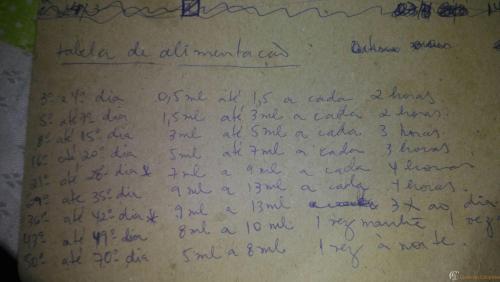 tabela de alimentação
3º a 4º dia 0,5ml até 1,5 a cada 2 horas
5º até 7º dia 1,5ml até 3ml a cada 2 horas.
8º até 15º dia 3ml até 5ml a cada 3 horas
16º até 20º dia 5ml até 7ml a cada 3 horas
21º até dia * 7ml a 9ml a cada 4 horas
29º até 35º dia 9ml a 13ml a cada 4 horas.
36º até 42º dia * 9ml a 13ml 3x ao dia
43º até 49º dia 8ml a 10ml 1 vez manhã 1 vez
50º até 70º dia 5ml a 8ml 1 vez à noite.